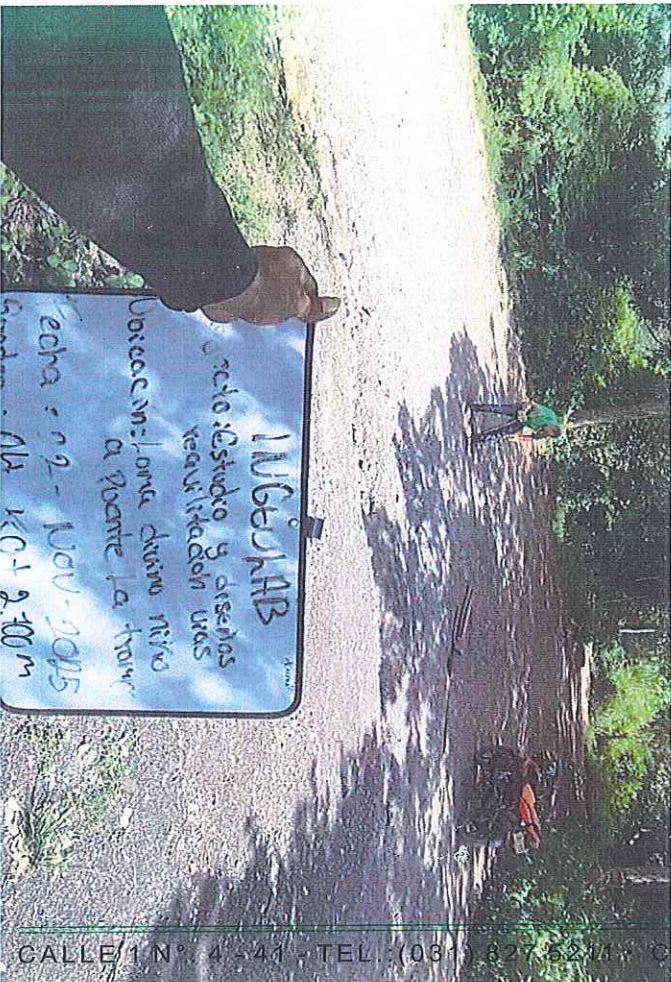 INGEOLAB
Estudio y diseños
reavilitación vias
Ubicacion: Loma divino niño
a Puente La
Fecha: 02-NOV-2015
K0+2700 m
CALLE 1 N°. 4 - 41 - TEL.: (031) 827 5211 - C